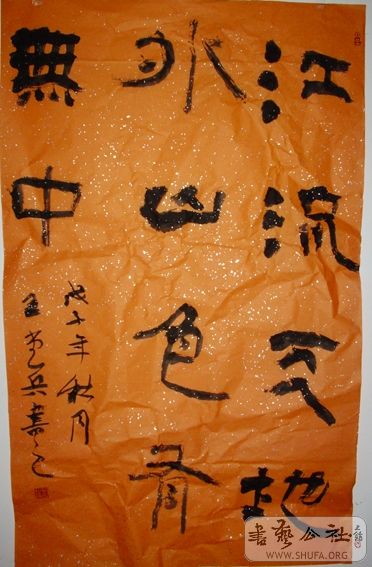 江流天地
外山色有
無中
戊子年秋月
王兵書之
書藝公社
WWW.SHUFA.ORG